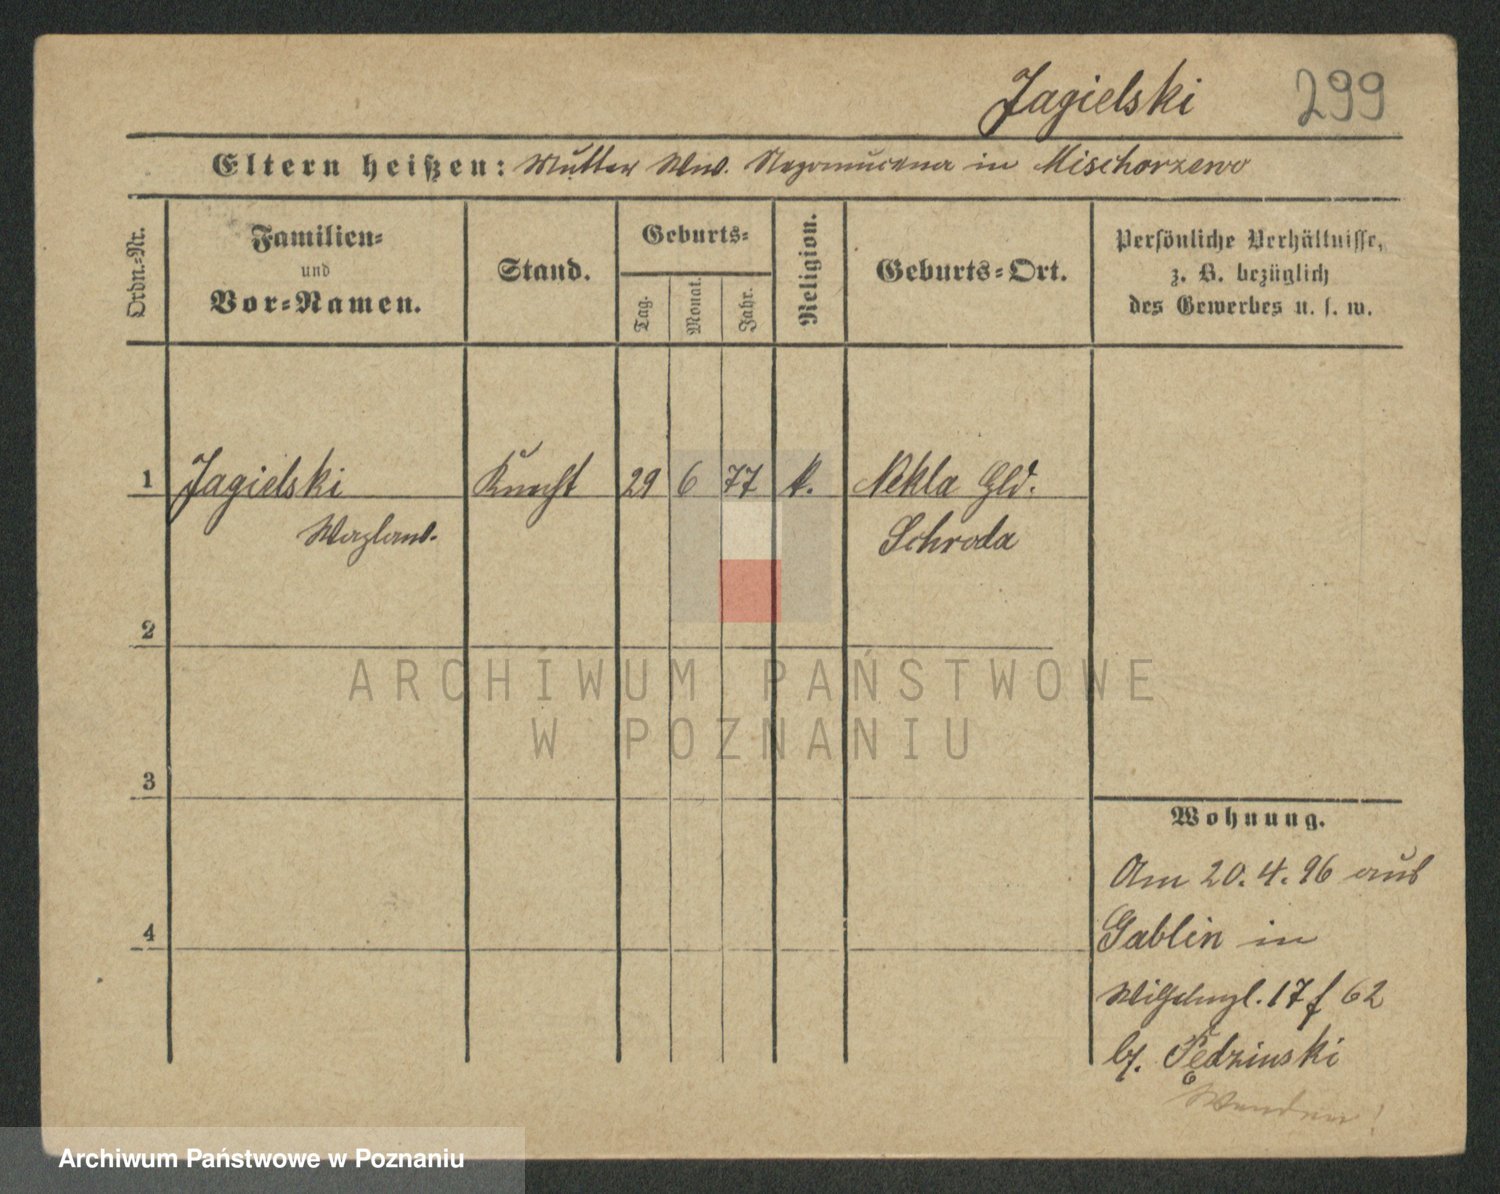 Jagielski 299
Eltern heißen: Mutter Ww. Nepomucena in Mischorzewo
Ordn.-Nr.
Familien-
und
Vor-Namen.
Stand.
Geburts-
Tag.
Monat.
Jahr.
Religion.
Geburts-Ort.
Persönliche Verhältnisse,
z. B. bezüglich
des Gewerbes u. s. w.
1 Jagielski Knecht 29 6 77 k. Nekla Gld.
Wazlaw. Schroda
2
3
4
Wohnung.
Am 20.4.96 aus
Gablin in
17 f 62
by. Pędzinski
Wenden!
ARCHIWUM PAŃSTWOWE
W POZNANIU
Archiwum Państwowe w Poznaniu